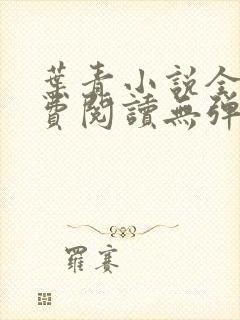 葉青小說全
費閱讀無彈
羅賽